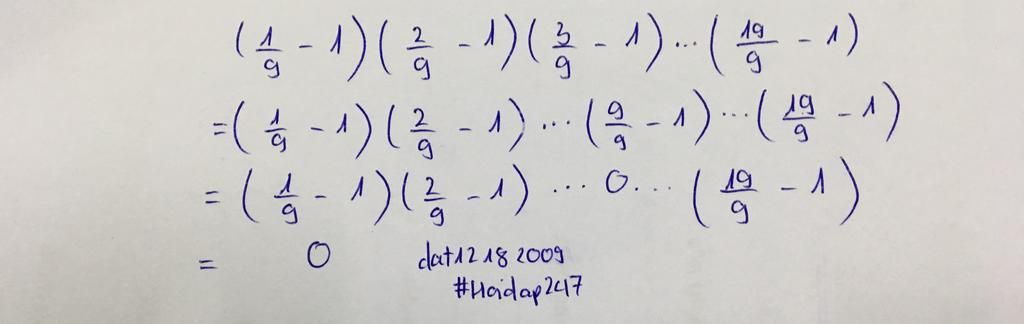 (1/9 - 1)(2/9 - 1)(3/9 - 1)...(19/9 - 1)
=(1/9 - 1)(2/9 - 1)...(9/9 - 1)...(19/9 - 1)
= (1/9 - 1)(2/9 - 1) ... 0... (19/9 - 1)
= 0 dat12182009
#Hoidap247